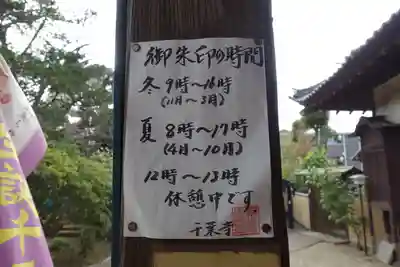 御朱印の時間
冬 9時〜16時
(11月〜3月)
夏 8時〜17時
(4月〜10月)
12時〜13時
休憩中です
千葉寺